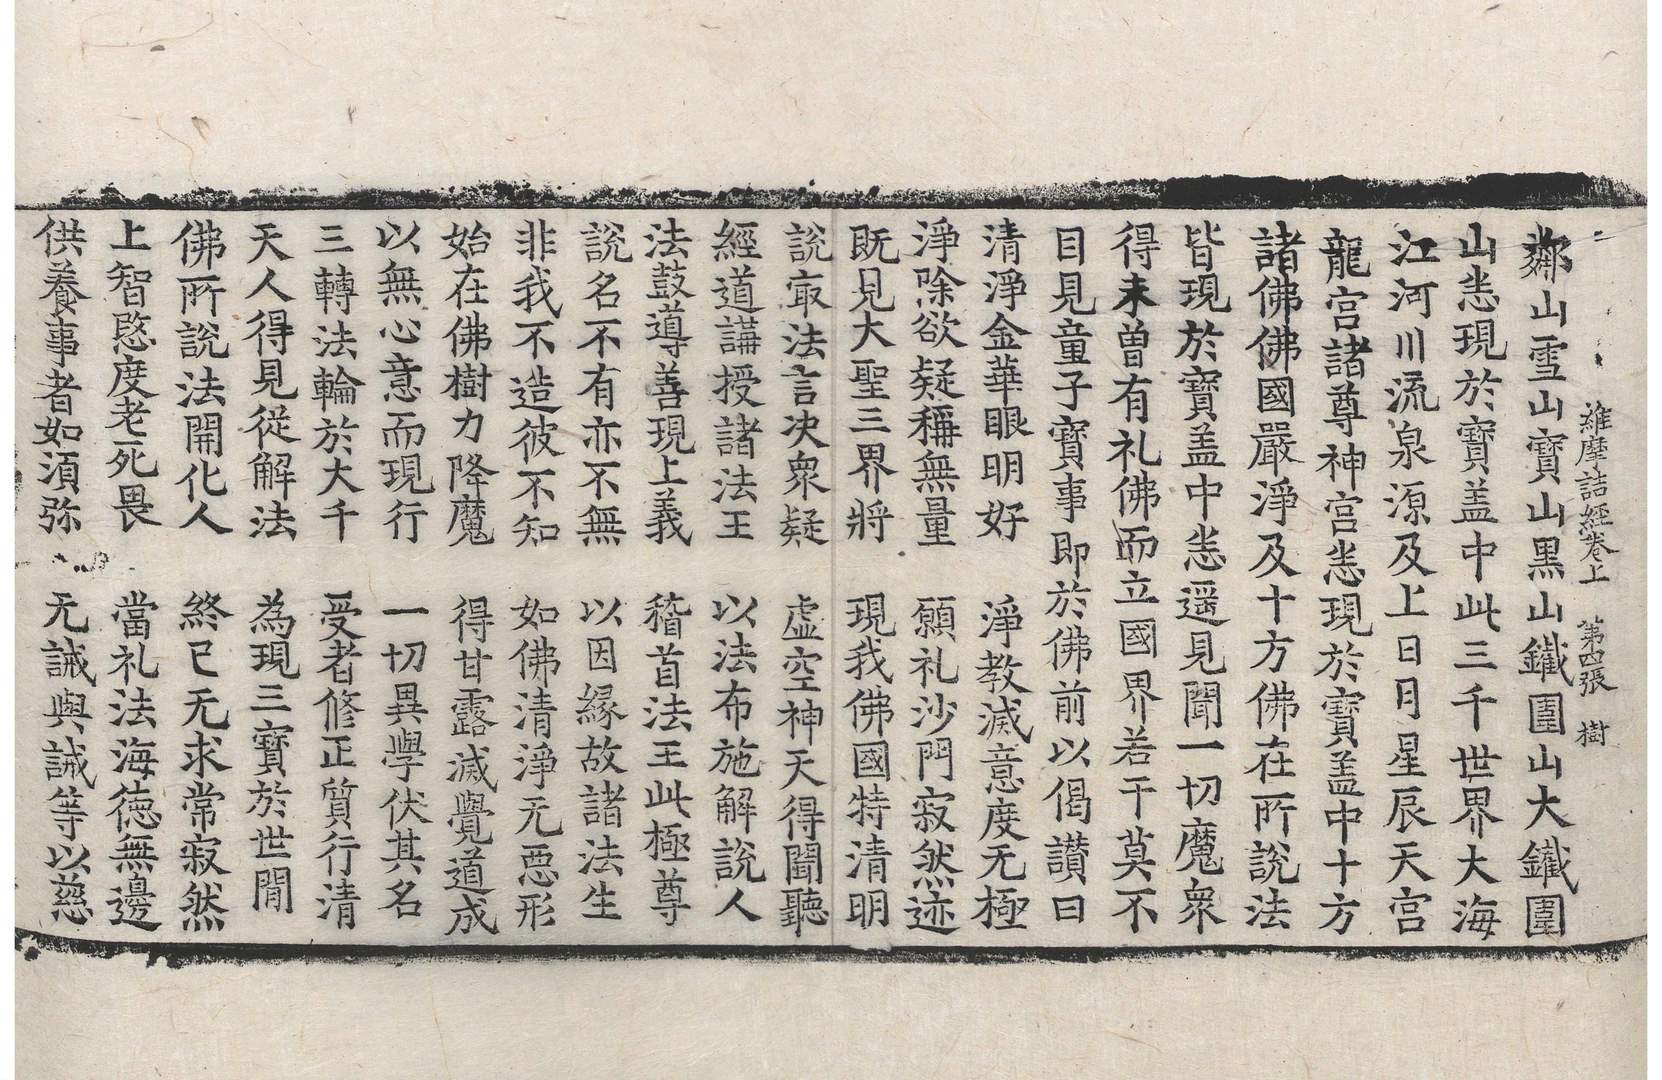 維摩詰經卷上　第四張　樹
鄰山雪山寳山黒山鐵圍山大鐵圍
山悉現於寳盖中此三千世界大海
江河川流泉源及上日月星辰天宫
龍宫諸尊神宫悉現於寳盖中十方
諸佛佛國嚴淨及十方佛在所說法
皆現於寳盖中悉遥見聞一切魔衆
得未曽有礼佛而立國界若干莫不
目見童子寳事即於佛前以偈讃曰
清淨金華眼明好　淨教滅意度无極
淨除欲疑稱無量　願礼沙門寂然迹
既見大聖三界將　現我佛國特清明
說㝡法言决衆疑　虚空神天得聞聽
經道講授諸法王　以法布施解說人
法鼓導善現上義　稽首法王此極尊
說名不有亦不無　以因緣故諸法生
非我不造彼不知　如佛清淨无惡形
始在佛樹力降魔　得甘露滅覺道成
以無心意而現行　一切異學伏其名
三轉法輪於大千　受者修正質行清
天人得見從解法　為現三寳於世間
佛所說法開化人　終已无求常寂然
上智愍度老死畏　當礼法海德無邊
供養事者如湏弥　无誡與誡等以慈